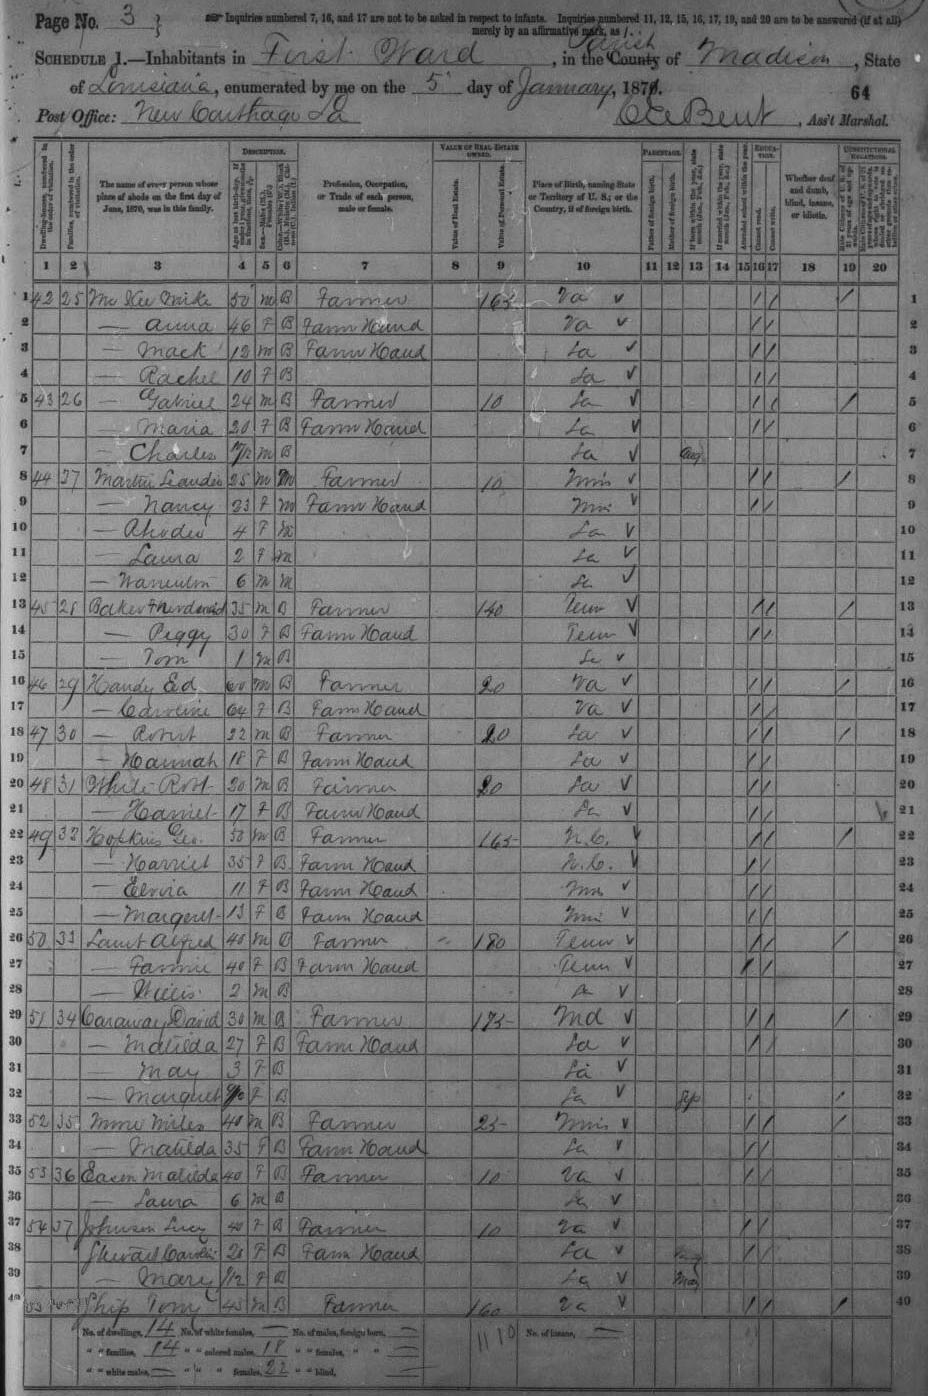 Page No. 3
Inquiries numbered 7, 16, and 17 are not to be asked in respect to infants. Inquiries numbered 11, 12, 15, 16, 17, 19, and 20 are to be answered (if at all)
merely by an affirmative mark, as /.
Schedule 1.—Inhabitants in First Ward, in the County Parish of Madison, State
of Louisiana, enumerated by me on the 5 day of January, 1871.
64
Post Office: New Carthage La
Ass't Marshal.
DESCRIPTION. VALUE OF REAL ESTATE OWNED. PARENTAGE. EDUCATION. CONSTITUTIONAL RELATIONS.
Dwelling-houses, numbered in the order of visitation.
Families, numbered in the order of visitation.
The name of every person whose place of abode on the first day of June, 1870, was in this family.
Profession, Occupation, or Trade of each person, male or female.
Value of Real Estate.
Value of Personal Estate.
Place of Birth, naming State or Territory of U. S.; or the Country, if of foreign birth.
Father of foreign birth.
Mother of foreign birth.
Attended school within the year.
Cannot read.
Cannot write.
Whether deaf and dumb, blind, insane, or idiotic.
1 2 3 4 5 6 7 8 9 10 11 12 13 14 15 16 17 18 19 20
1 42 25 Mike 50 M B Farmer 165 Va 1
2 — Anna 46 F B Farm Hand Va 2
3 — Mack 12 M B Farm Hand La 3
4 — Rachel 10 F B La 4
5 43 26 — Gabriel 24 M B Farmer 10 La 5
6 — Maria 20 F B Farm Hand La 6
7 — Charles M B La Aug 7
8 44 27 Martin 25 M M Farmer 10 Miss 8
9 — Nancy 23 F M Farm Hand Miss 9
10 — 4 F M La 10
11 — Laura 2 F M La 11
12 — 6 M M La 12
13 45 28 Baker 35 M B Farmer 140 Tenn 13
14 — Peggy 30 F B Farm Hand Tenn 14
15 — Tom 1 M B La 15
16 46 29 Handy Ed 60 M B Farmer 20 Va 16
17 — Caroline 64 F B Farm Hand Va 17
18 47 30 — Robert 22 M B Farmer 20 La 18
19 — Hannah 18 F B Farm Hand La 19
20 48 31 White Robt 20 M B Farmer 20 La 20
21 — Harriet 17 F B Farm Hand La 21
22 49 32 Hopkins Geo. 50 M B Farmer 165 N.C. 22
23 — Harriet 35 F B Farm Hand N.C. 23
24 — Elvira 11 F B Farm Hand Miss 24
25 — Margaret 13 F B Farm Hand Miss 25
26 50 33 Alfred 40 M B Farmer 180 Tenn 26
27 — Fannie 40 F B Farm Hand Tenn 27
28 — Willis 2 M B La 28
29 51 34 Caraway David 30 M B Farmer 175 Md 29
30 — Matilda 27 F B Farm Hand La 30
31 — May 3 F B La 31
32 — Margaret F B La Sep 32
33 52 35 Miles 40 M B Farmer 25 Miss 33
34 — Matilda 35 F B Farm Hand La 34
35 53 36 Eason Matilda 40 F B Farmer 10 Va 35
36 — Laura 6 M B La 36
37 54 37 Johnson Lucy 40 F B Farmer 10 Va 37
38 Caroline 20 F B Farm Hand La 38
39 — Mary F B La May 39
40 Ship Tom 45 M B Farmer 160 Va 40
No. of dwellings, 14 No. of white females, — No. of males, foreign born, — 1110 No. of insane, —
" " families, 14 " " colored males, 18 " " females, " " —
" " white males, — " " females, 22 " " blind, —